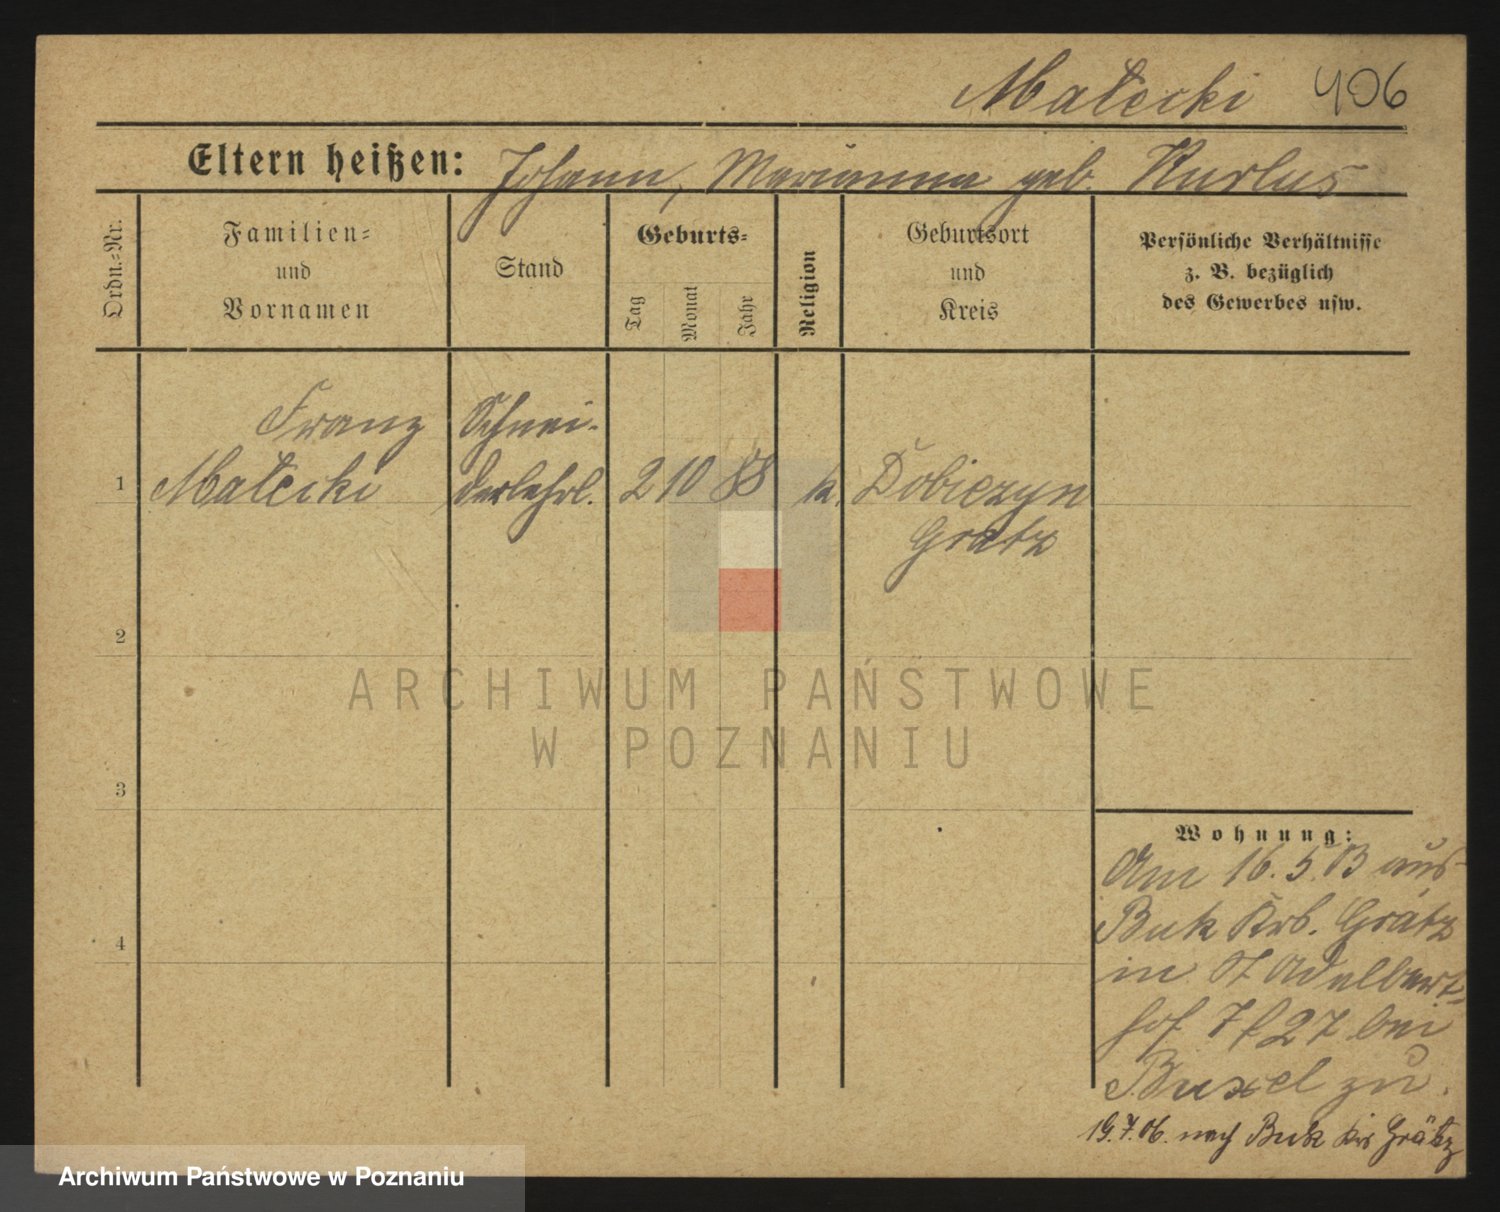 Małecki 406
Eltern heißen: Johann, Marianna geb. Kurlus
Ordn.-Nr.
Familien-
und
Vornamen
Stand
Geburts-
Tag
Monat
Jahr
Religion
Geburtsort
und
Kreis
Persönliche Verhältnisse
z. B. bezüglich
des Gewerbes usw.
Franz Schnei-
1 Małecki derlehrl. 2 10 88 k. Dobiezyn
Grätz
2
3
4
Wohnung:
Am 16. 5. 03 aus
Buk Krs. Grätz
in St Adalbert-
hof 27 bei
Buxel zu.
19.7.06. nach Buk Krs Grätz
ARCHIWUM PAŃSTWOWE
W POZNANIU
Archiwum Państwowe w Poznaniu